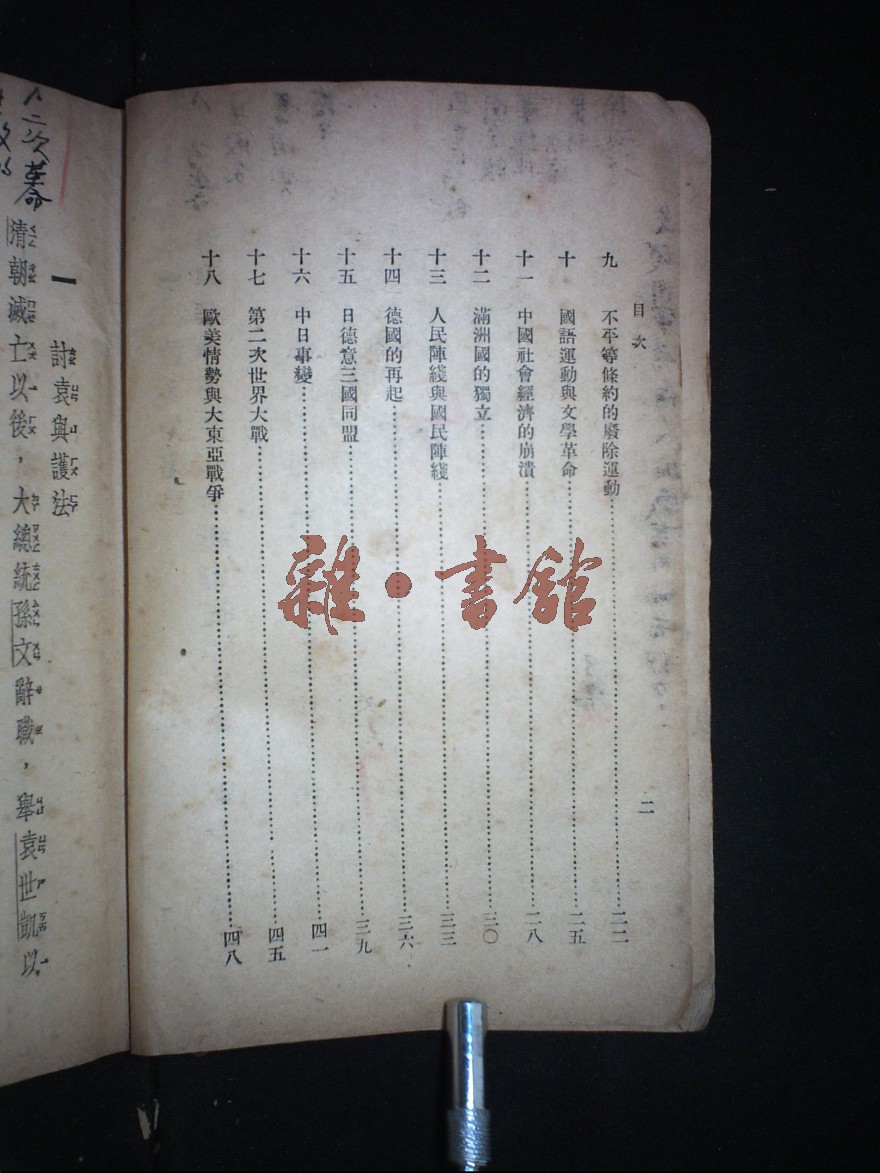 目次
九 不平等條約的廢除運動……二二
十 國語運動與文學革命……二五
十一 中國社會經濟的崩潰……二八
十二 滿洲國的獨立……三〇
十三 人民陣綫與國民陣綫……三三
十四 德國的再起……三六
十五 日德意三國同盟……三九
十六 中日事變……四一
十七 第二次世界大戰……四五
十八 歐美情勢與大東亞戰爭……四八
二
雜·書館
一 討袁與護法
清朝滅亡以後，大總統孫文辭職，舉袁世凱以
二次革命